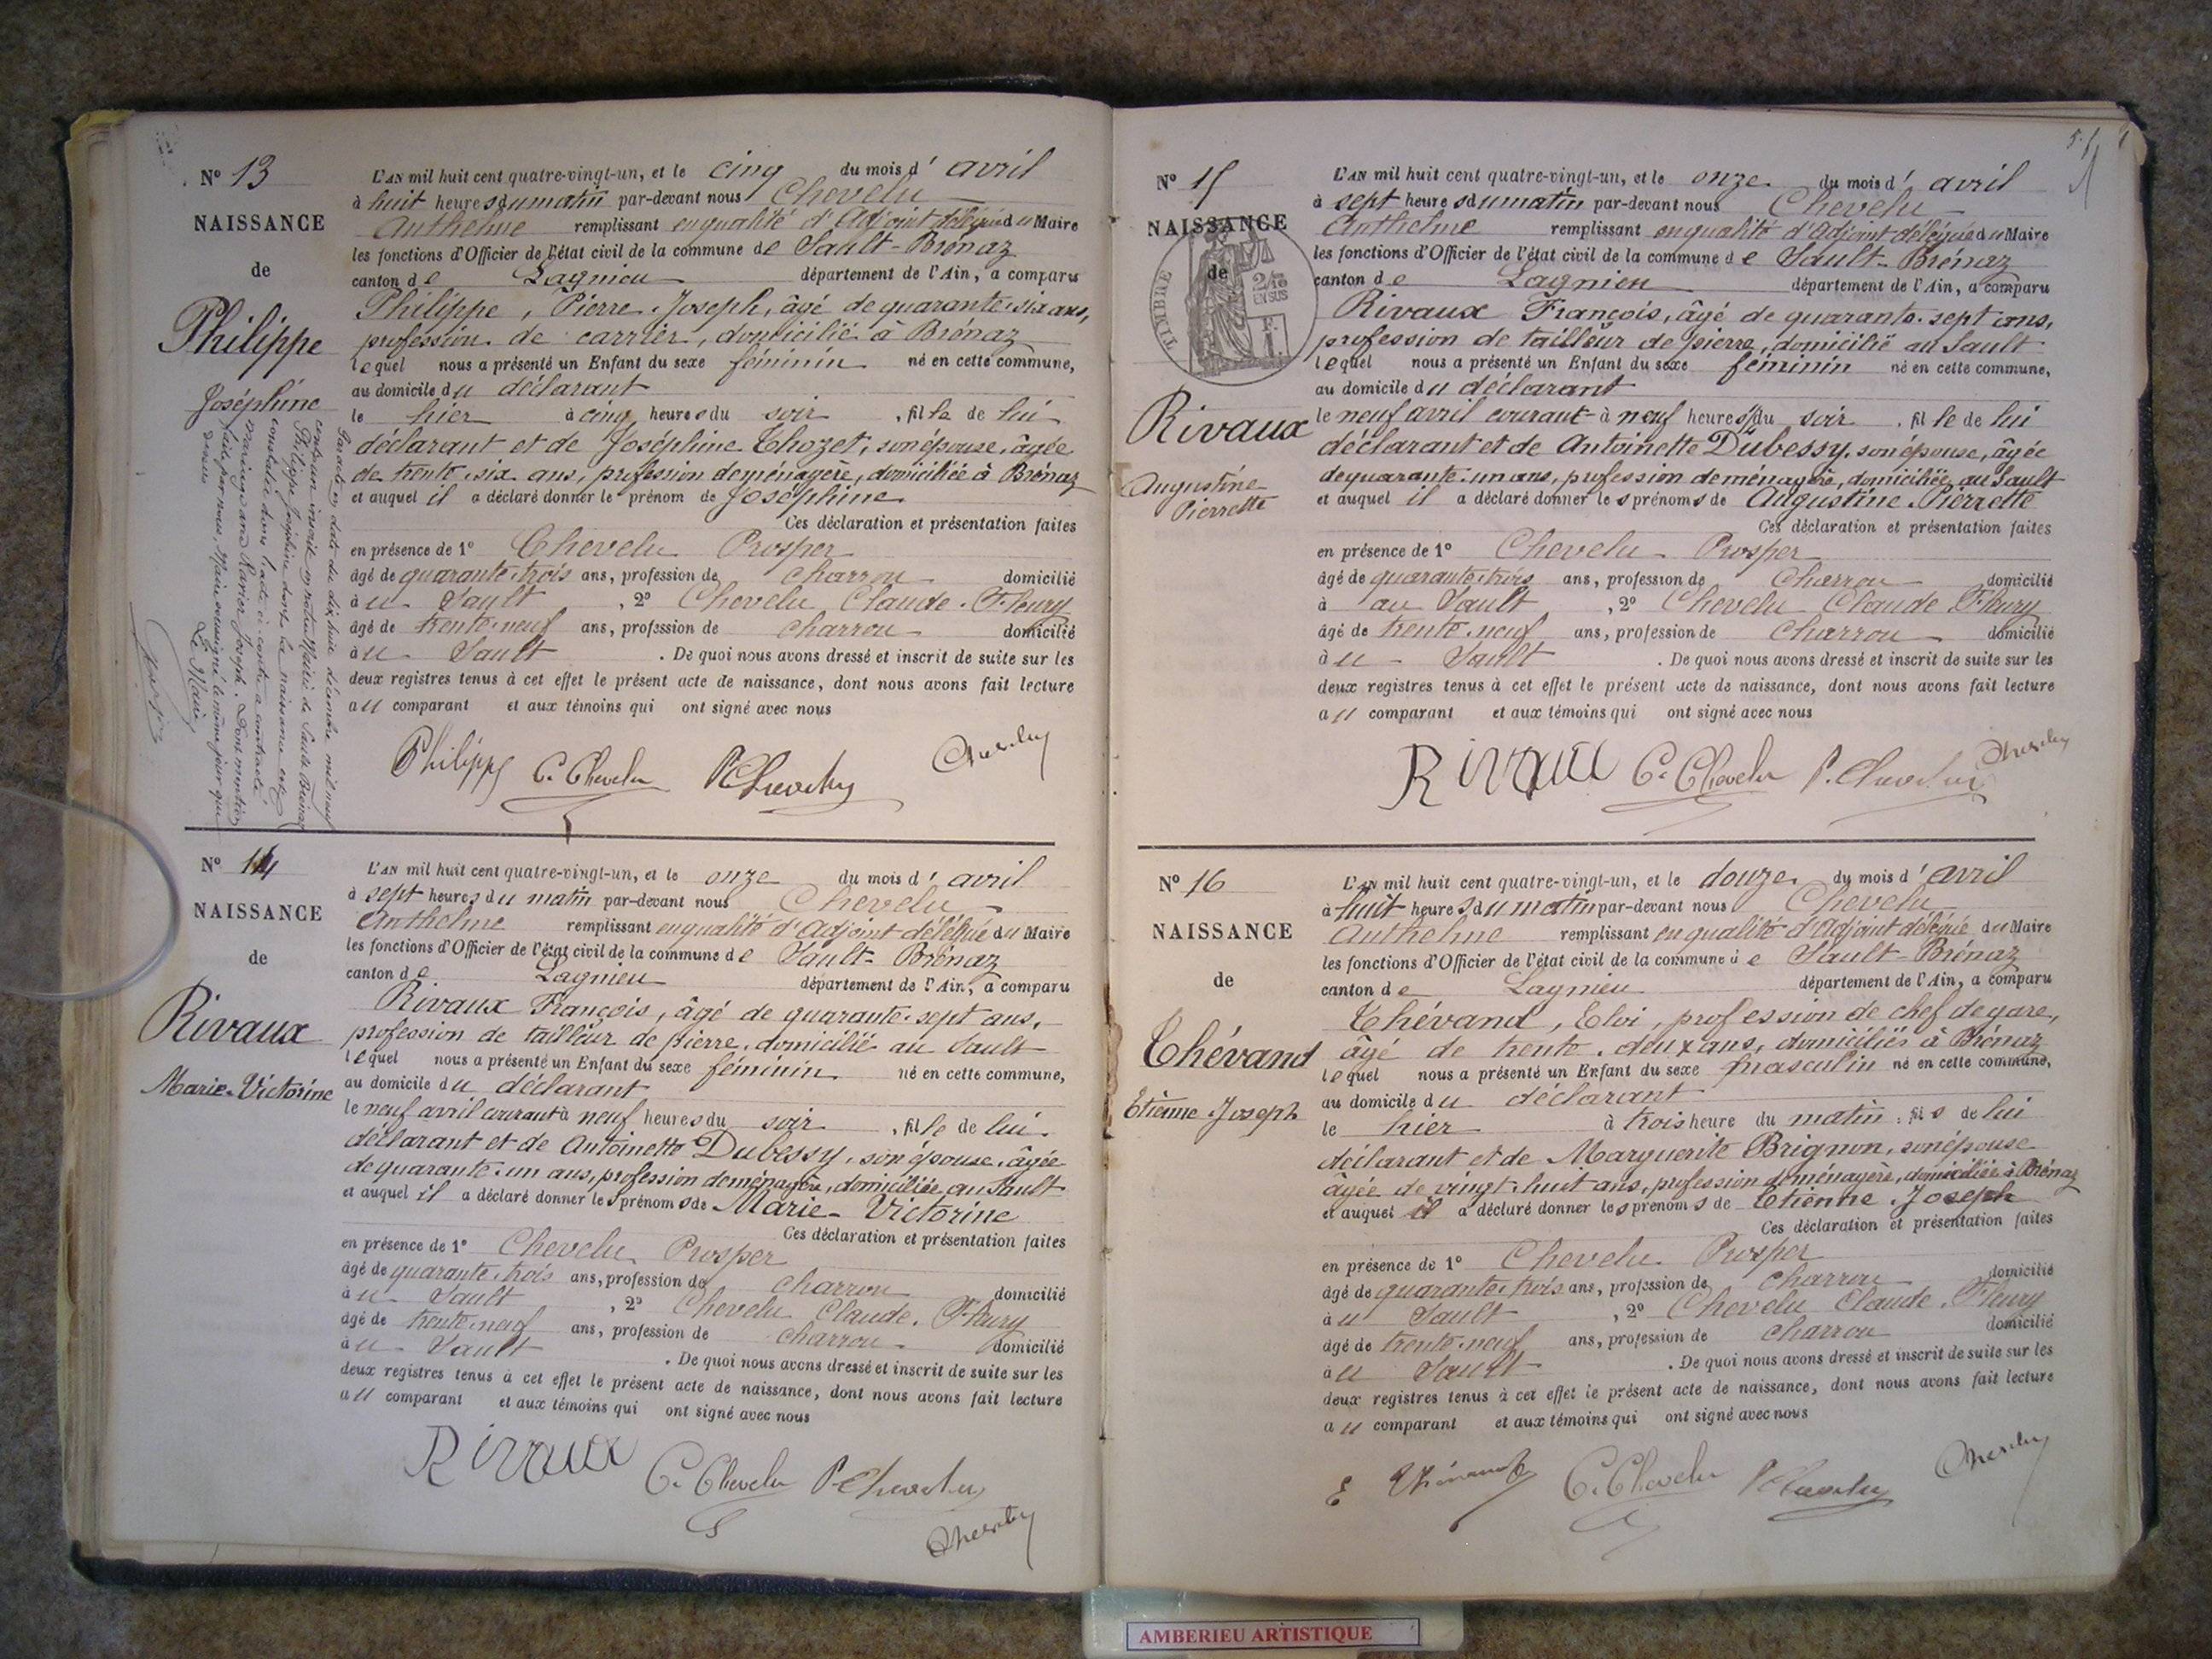 N° 13
NAISSANCE
de
Philippe
Joséphine
L'AN mil huit cent quatre-vingt-un, et le cinq du mois d' avril
à huit heures du matin par-devant nous Chevelu
Anthelme remplissant en qualité d'Adjoint délégué du Maire
les fonctions d'Officier de l'état civil de la commune de Sault-Brénaz
canton de Lagnieu département de l'Ain, a comparu
Philippe, Pierre Joseph, âgé de quarante-six ans,
profession de carrier, domicilié à Brénaz
lequel nous a présenté un Enfant du sexe féminin né en cette commune,
au domicile du déclarant
le hier à cinq heures du soir, fille de lui
déclarant et de Joséphine Chozet, son épouse, âgée
de trente-six ans, profession de ménagère, domiciliée à Brénaz
et auquel il a déclaré donner le prénom de Joséphine
Ces déclaration et présentation faites
en présence de 1° Chevelu Prosper
âgé de quarante-trois ans, profession de charron domicilié
au Sault, 2° Chevelu Claude-Fleury
âgé de trente-neuf ans, profession de charron domicilié
au Sault. De quoi nous avons dressé et inscrit de suite sur les
deux registres tenus à cet effet le présent acte de naissance, dont nous avons fait lecture
au comparant et aux témoins qui ont signé avec nous
Philippe C. Chevelu P. Chevelu Chevelu
Par acte en date du dix huit décembre mil neuf
cent un inscrit en notre Mairie de Sault-Brénaz
Philippe Joséphine dont la naissance est
constatée dans l'acte ci-contre a contracté
mariage avec Joseph. Dont mention
faite par nous, Maire soussigné le même jour que
dessus
Le Maire
N° 14
NAISSANCE
de
Rivaux
Marie-Victorine
L'AN mil huit cent quatre-vingt-un, et le onze du mois d' avril
à sept heures du matin par-devant nous Chevelu
Anthelme remplissant en qualité d'Adjoint délégué du Maire
les fonctions d'Officier de l'état civil de la commune de Sault-Brénaz
canton de Lagnieu département de l'Ain, a comparu
Rivaux François, âgé de quarante-sept ans,
profession de tailleur de pierre, domicilié au Sault
lequel nous a présenté un Enfant du sexe féminin né en cette commune,
au domicile du déclarant
le neuf avril courant à neuf heures du soir, fille de lui
déclarant et de Antoinette Dubessy, son épouse, âgée
de quarante-un ans, profession de ménagère, domiciliée au Sault
et auquel il a déclaré donner les prénoms de Marie-Victorine
Ces déclaration et présentation faites
en présence de 1° Chevelu Prosper
âgé de quarante-trois ans, profession de charron domicilié
au Sault, 2° Chevelu Claude-Fleury
âgé de trente-neuf ans, profession de charron domicilié
au Sault. De quoi nous avons dressé et inscrit de suite sur les
deux registres tenus à cet effet le présent acte de naissance, dont nous avons fait lecture
au comparant et aux témoins qui ont signé avec nous
Rivaux C. Chevelu P. Chevelu
Chevelu
N° 15
NAISSANCE
de
TIMBRE
2/10
EN SUS
Rivaux
Augustine
Pierrette
L'AN mil huit cent quatre-vingt-un, et le onze du mois d' avril
à sept heures du matin par-devant nous Chevelu
Anthelme remplissant en qualité d'Adjoint délégué du Maire
les fonctions d'Officier de l'état civil de la commune de Sault-Brénaz
canton de Lagnieu département de l'Ain, a comparu
Rivaux François, âgé de quarante-sept ans,
profession de tailleur de pierre, domicilié au Sault
lequel nous a présenté un Enfant du sexe féminin né en cette commune,
au domicile du déclarant
le neuf avril courant à neuf heures du soir, fille de lui
déclarant et de Antoinette Dubessy, son épouse, âgée
de quarante-un ans, profession de ménagère, domiciliée au Sault
et auquel il a déclaré donner les prénoms de Augustine Pierrette
Ces déclaration et présentation faites
en présence de 1° Chevelu Prosper
âgé de quarante-trois ans, profession de Charron domicilié
à au Sault, 2° Chevelu Claude Fleury
âgé de trente-neuf ans, profession de charron domicilié
au Sault. De quoi nous avons dressé et inscrit de suite sur les
deux registres tenus à cet effet le présent acte de naissance, dont nous avons fait lecture
au comparant et aux témoins qui ont signé avec nous
Rivaux C. Chevelu P. Chevelu Chevelu
N° 16
NAISSANCE
de
Thévand
Etienne Joseph
L'AN mil huit cent quatre-vingt-un, et le douze du mois d' avril
à huit heures du matin par-devant nous Chevelu
Anthelme remplissant en qualité d'Adjoint délégué du Maire
les fonctions d'Officier de l'état civil de la commune de Sault-Brénaz
canton de Lagnieu département de l'Ain, a comparu
Thévand, Eloi, profession de chef de gare,
âgé de trente-deux ans, domicilié à Brénaz
lequel nous a présenté un Enfant du sexe masculin né en cette commune,
au domicile du déclarant
le hier à trois heure du matin, fils de lui
déclarant et de Marguerite Brignon, son épouse
âgée de vingt-huit ans, profession de ménagère, domiciliée à Brénaz
et auquel il a déclaré donner les prénoms de Etienne Joseph
Ces déclaration et présentation faites
en présence de 1° Chevelu Prosper
âgé de quarante-trois ans, profession de charron domicilié
au Sault, 2° Chevelu Claude-Fleury
âgé de trente-neuf ans, profession de charron domicilié
au Sault. De quoi nous avons dressé et inscrit de suite sur les
deux registres tenus à cet effet le présent acte de naissance, dont nous avons fait lecture
au comparant et aux témoins qui ont signé avec nous
E Thévand C. Chevelu P. Chevelu Chevelu
AMBERIEU ARTISTIQUE